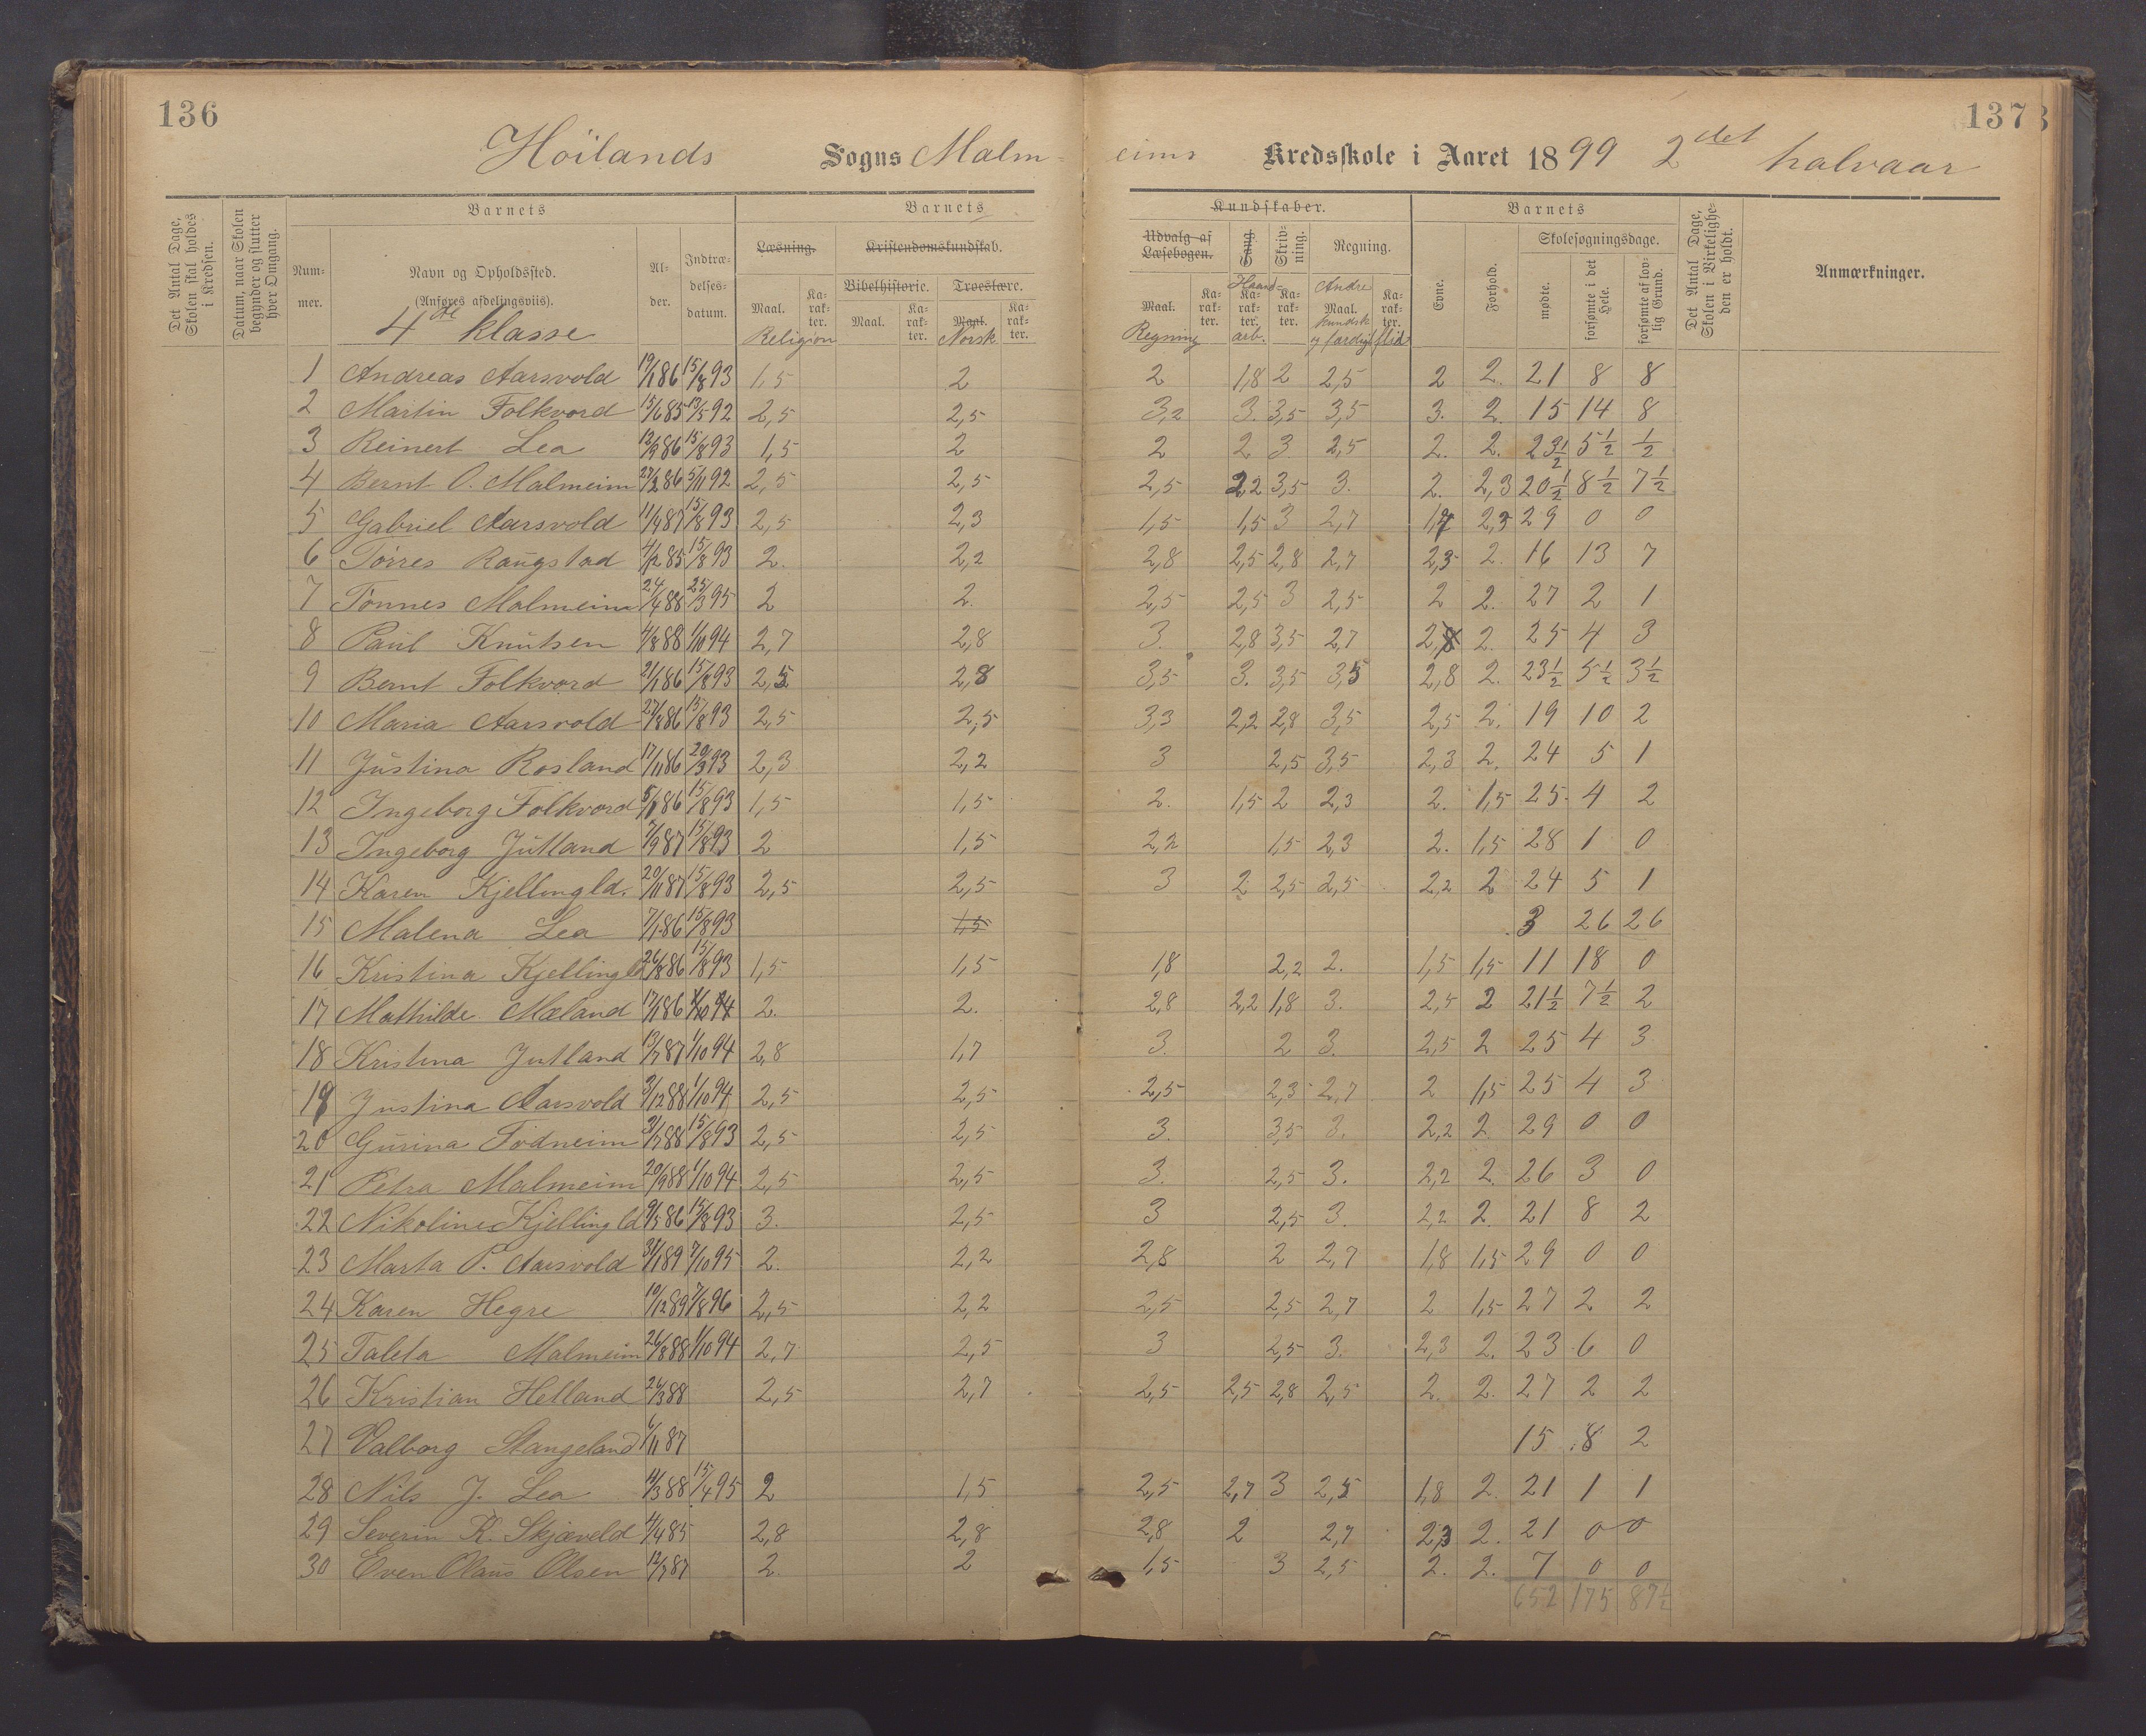 136
137
Höilands Sogns Malm- eims Kredsskole i Aaret 1899 2det halvaar
Det Antal Dage, Skolen skal holdes i Kredsen.
Datum, naar Skolen begynder og slutter hver Omgang.
Barnets
Barnets
Kundskaber.
Barnets
Det Antal Dage, Skolen i Virkeligheden er holdt.
Anmærkninger.
Nummer.
Navn og Opholdssted.
(Anføres afdelingsviis).
4de klasse
Alder.
Indtrædelsesdatum.
Læsning.
Kristendomskundskab.
Bibelhistorie.
Troeslære.
Udvalg af Læsebogen.
Sang.
Skrivning.
Regning.
Evne.
Forhold.
Skolesøgningsdage.
mødte.
forsømte i det Hele.
forsømte af lovlig Grund.
Maal. Karakter. Maal. Karakter. Maal. Karakter. Maal. Karakter. Karakter. Karakter. Maal. Karakter.
Religion Norsk Regning Haandarb. Andre kundsk og færdigh flid
1 Andreas Aarsvold 19/1 86 15/8 93 1,5 2 2 1,8 2 2,5 2 2. 21 8 8
2 Martin Folkvord 15/6 85 13/5 92 2,5 2,5 3,2 3. 3,5 3,5 3. 2. 15 14 8
3 Reinert Lea 12/9 86 15/8 93 1,5 2 2 2 3. 2,5 2. 2. 23 1/2 5 1/2 1/2
4 Bernt O. Malmeim 27/2 86 5/11 92 2,5 2,5 2,5 2,2 3,5 3. 2. 2,3 20 1/2 8 1/2 7 1/2
5 Gabriel Aarsvold 11/9 87 15/8 93 2,5 2,3 1,5 1,5 3 2,7 1,7 2,3 29 0 0
6 Törres Raugstad 4/12 85 15/8 93 2. 2,2 2,8 2,5 2,8 2,7 2,3 2. 16 13 7
7 Tönnes Malmeim 24/4 88 25/3 95 2 2. 2,5 2,5 3 2,5 2 2. 27 2 1
8 Paul Knutsen 4/8 88 1/10 94 2,7 2,8 3. 2,8 3,5 2,7 2,8 2. 25 4 3
9 Bernt Folkvord 21/1 86 15/8 93 2,5 2,8 3,5 3. 3,5 3,5 2,8 2. 23 1/2 5 1/2 3 1/2
10 Maria Aarsvold 27/8 86 15/8 93 2,5 2,5 3,3 2,2 2,8 3,5 2,5 2. 19 10 2
11 Justina Rosland 17/11 86 20/3 93 2,3 2,2 3 2,5 3,5 2,3 2. 24 5 1
12 Ingeborg Folkvord 5/1 86 15/8 93 1,5 1,5 2. 1,5 2 2,3 2. 1,5 25 4 2
13 Ingeborg Jutland 7/9 87 15/8 93 2 1,5 2,2 1,5 2,3 2. 1,5 28 1 0
14 Karen Kjellingld. 20/11 87 15/8 93 2,5 2,5 3 2 2,5 2,5 2,2 2 24 5 1
15 Malena Lea 7/1 86 15/8 93 1,5 3 26 26
16 Kristina Kjellingld 26/8 86 15/8 93 1,5 1,5 1,8 2,2 2. 1,5 1,5 11 18 0
17 Mathilde Mæland 17/1 86 1/10 94 2. 2. 2,8 2,2 1,8 3. 2,5 2 21 1/2 7 1/2 2
18 Kristina Jutland 13/7 87 1/10 94 2,8 1,7 3. 2 3. 2,5 2 25 4 3
19 Justina Aarsvold 3/12 88 1/10 94 2,5 2,5 2,5 2,3 2,7 2 1,5 25 4 3
20 Gurina Tödneim 3/7 88 15/8 93 2,5 2,5 3. 3,5 3. 2,2 2. 29 0 0
21 Petra Malmeim 20/9 88 1/10 94 2,5 2,5 3. 2,5 3. 2,2 2. 26 3 0
22 Nikoline Kjellingld 9/5 86 15/8 93 3. 2,5 3 2,5 3. 2,2 2. 21 8 2
23 Marta P. Aarsvold 31/1 89 7/10 95 2. 2,2 2,8 2 2,7 1,8 1,5 29 0 0
24 Karen Hegre 10/12 89 7/8 96 2,5 2,2 2,5 2,5 2,7 2 1,5 27 2 2
25 Taleta Malmeim 26/8 88 1/10 94 2,7 2,5 3 2,5 3. 2,3 2. 23 6 0
26 Kristian Helland 26/3 88 2,5 2,7 2,5 2,5 2,8 2,5 2. 2. 27 2 2
27 Valborg Stangeland 6/11 87 15 8 2
28 Nils J. Lea 11/3 88 15/4 95 2 1,5 2,5 2,7 3 2,5 1,8 2. 21 1 1
29 Severin K. Skjæveld 4/4 85 2,8 2,8 2,8 2 2,7 2,3 2. 21 0 0
30 Even Olaus Olsen 12/7 87 2. 2 1,5 3 2,5 2. 2. 7 0 0
652 175 87 1/2